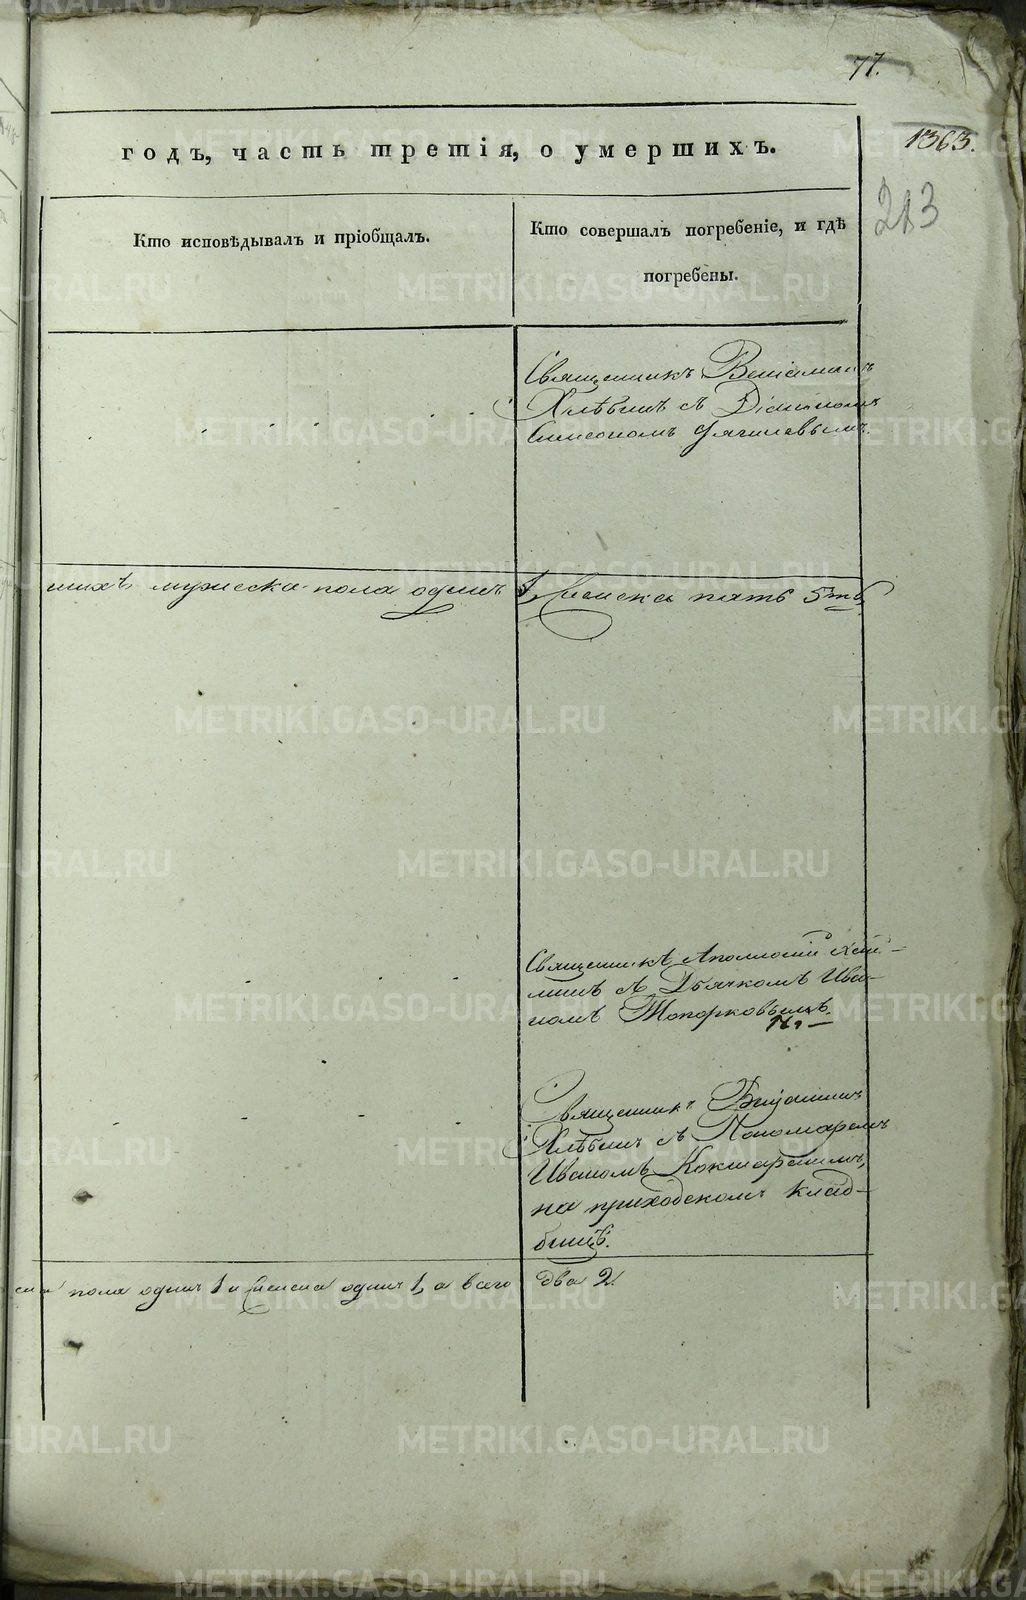 77.
1363.
213
годъ, часть третія, о умершихъ.
Кто исповѣдывалъ и пріобщалъ.
Кто совершалъ погребеніе, и гдѣ
погребены.
Священникъ Веніаминъ
Хлѣбинъ съ Діакономъ
Симеономъ
шихъ мужеска пола одинъ 1, женска пять 5
Священникъ Аполлоній
съ Дьячкомъ Ива-
номъ Топорковымъ.
Священникъ Веніаминъ
Хлѣбинъ съ Пономаремъ
Иваномъ Кокшаровымъ,
на приходскомъ клад-
бищѣ.
пола одинъ 1 и женска одинъ 1, а всего два 2.
METRIKI.GASO-URAL.RU